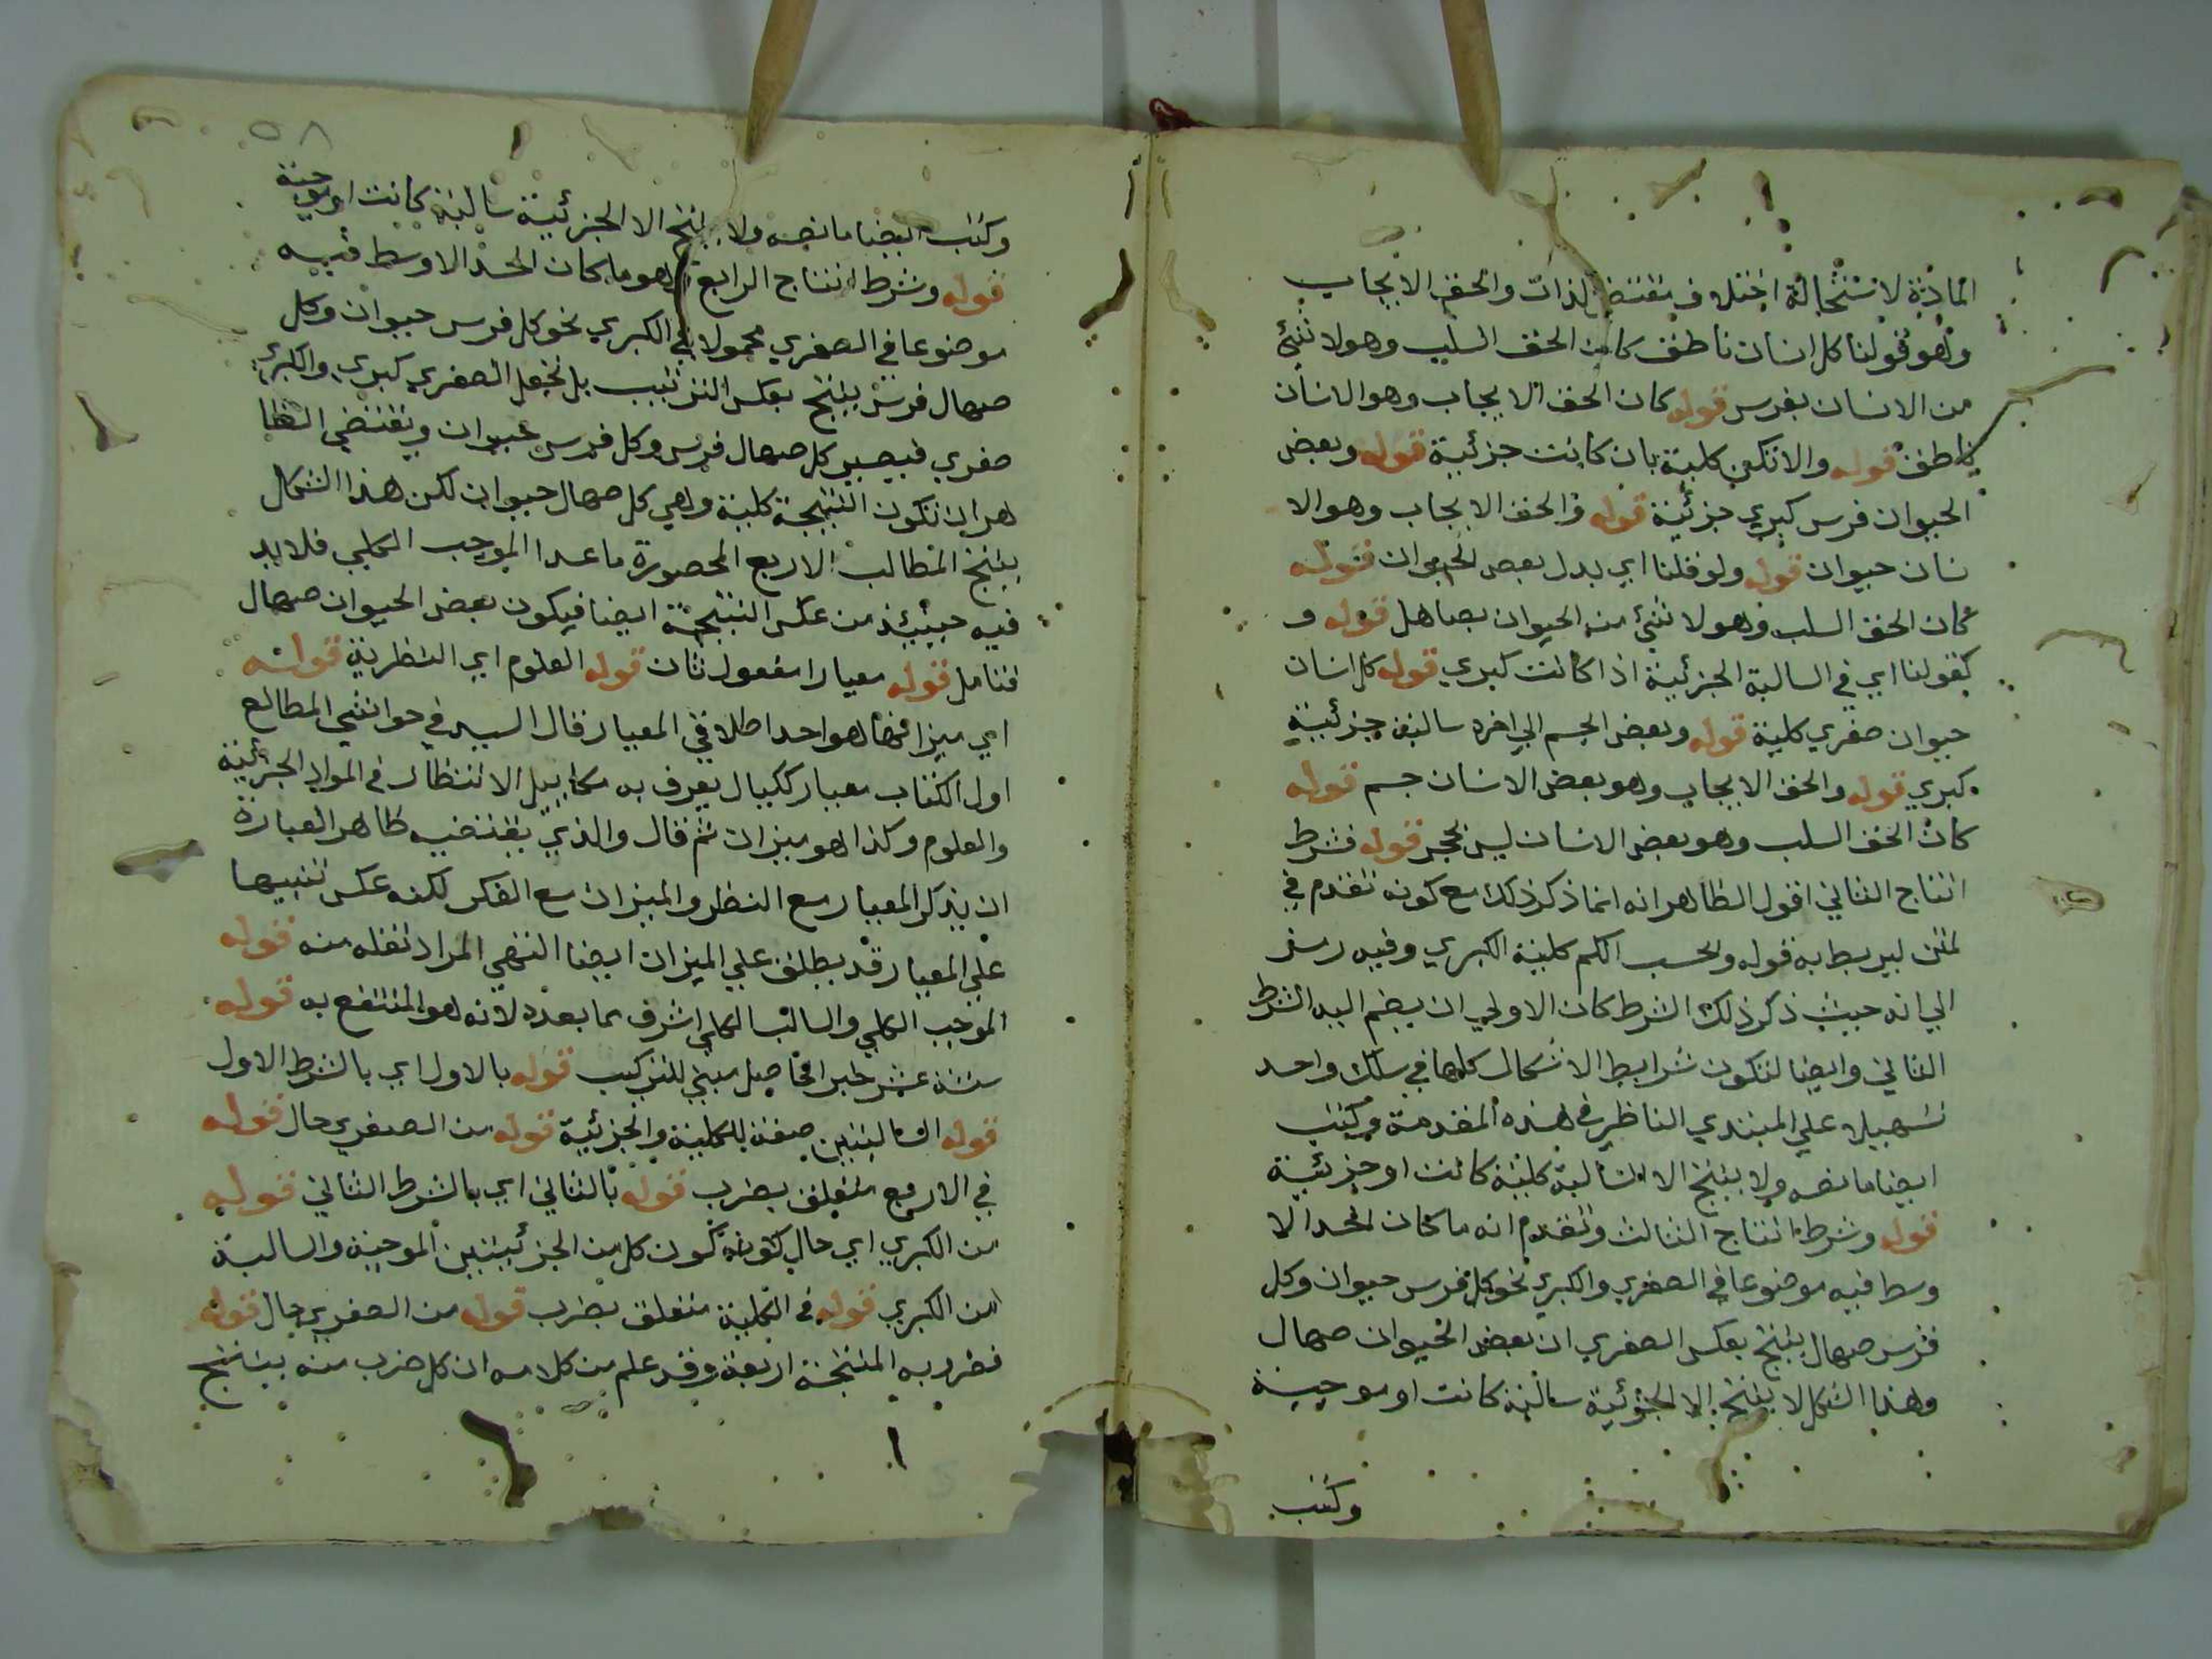 المادة لاستحالة اختلاف مقتضى الذات والحق الايجاب
وهو قولنا كل انسان ناطق كان الحق السلب وهو لا شئ
من الانسان بفرس قوله كان الحق الايجاب وهو الانسان
ناطق قوله والا تكن كلية بان كانت جزئية قوله وبعض
الحيوان فرس كبري جزئية قوله والحق الايجاب وهو الا
نسان حيوان قوله ولو قلنا اي بدل بعض الحيوان قوله
كان الحق السلب وهو لا شئ من الحيوان بصاهل قوله و
كقولنا اي في السالبة الجزئية اذا كانت كبري قوله كل انسان
حيوان صغري كلية قوله وبعض الجسم الي اخره سالبة جزئية
كبري قوله والحق الايجاب وهو بعض الانسان جسم قوله
كان الحق السلب وهو بعض الانسان ليس بحجر قوله فشرط
انتاج الثاني اقول الظاهر انه انما ذكر ذلك مع كونه تقدم في
لمتن ليربط به قوله وبحسب الكم كلية الكبري وفيه رمز
الي انه حيث ذكر ذلك الشرط كان الاولي ان يضم اليه الشرط
الثاني وايضا لتكون شرايط الاشكال كلها في سلك واحد
تسهيلا علي المبتدي الناظر في هذه المقدمة وكتب
ايضا ما نصه ولا ينتج الا السالبة كلية كانت او جزئية
قوله وشرط انتاج الثالث وتقدم انه ما كان الحد الا
وسط فيه موضوعا في الصغري والكبري نحو كل فرس حيوان وكل
فرس صهال ينتج بعكس الصغري ان بعض الحيوان صهال
وهذا الشكل لا ينتج الا الجزئية سالبة كانت او موجبة
وكتب
٥٨
وكتب ايضا ما نصه ولا ينتج الا الجزئية سالبة كانت او موجبة
قوله وشرط انتاج الرابع هو ما كان الحد الاوسط فيه
موضوعا في الصغري محمولا في الكبري نحو كل فرس حيوان وكل
صهال فرس ينتج بعكس الترتيب بل نجعل الصغري كبري والكبري
صغري فيصير كل صهال فرس وكل فرس حيوان ويقتضي الظا
هر ان تكون النتيجة كلية وهي كل صهال حيوان لكن هذا الشكال
ينتج المطالب الاربع المحصورة ما عدا الموجب الكلي فلا بد
فيه حينئذ من عكس النتيجة ايضا فيكون بعض الحيوان صهال
فتامل قوله معيارا مفعول ثان قوله العلوم اي النظرية قوله
اي ميزا فهما هو احد اطلاقي المعيار قال السيد في حواشي المطالع
اول الكتاب معيار ككيال يعرف به مكاييل الانتظار في المواد الجزئية
والعلوم وكذا هو ميزان ثم قال والذي يقتضيه ظاهر العبارة
ان يذكر المعيار مع النظر والميزان مع الفكر لكنه عكس تنبيها
علي المعيار قد يطلق علي الميزان ايضا انتهي المراد نقله منه قوله
الموجب الكلي والسالب الكلي اشرف مما بعده لانه هو المنتفع به قوله
ستة عشر خبر الحاصل مبني للتركيب قوله بالاول اي بالشرط الاول
قوله السالبتين صفة للكلية والجزئية قوله من الصغري حال قوله
في الاربع متعلق بضرب قوله بالثاني اي بالشرط الثاني قوله
من الكبري اي حال كونه كون كل من الجزئيتين الموجبة والسالبة
من الكبري قوله في الكلية متعلق بضرب قوله من الصغري حال قوله
فضروبه المنتجة اربعة وقد علم من كلامه ان كل ضرب منه ينتج